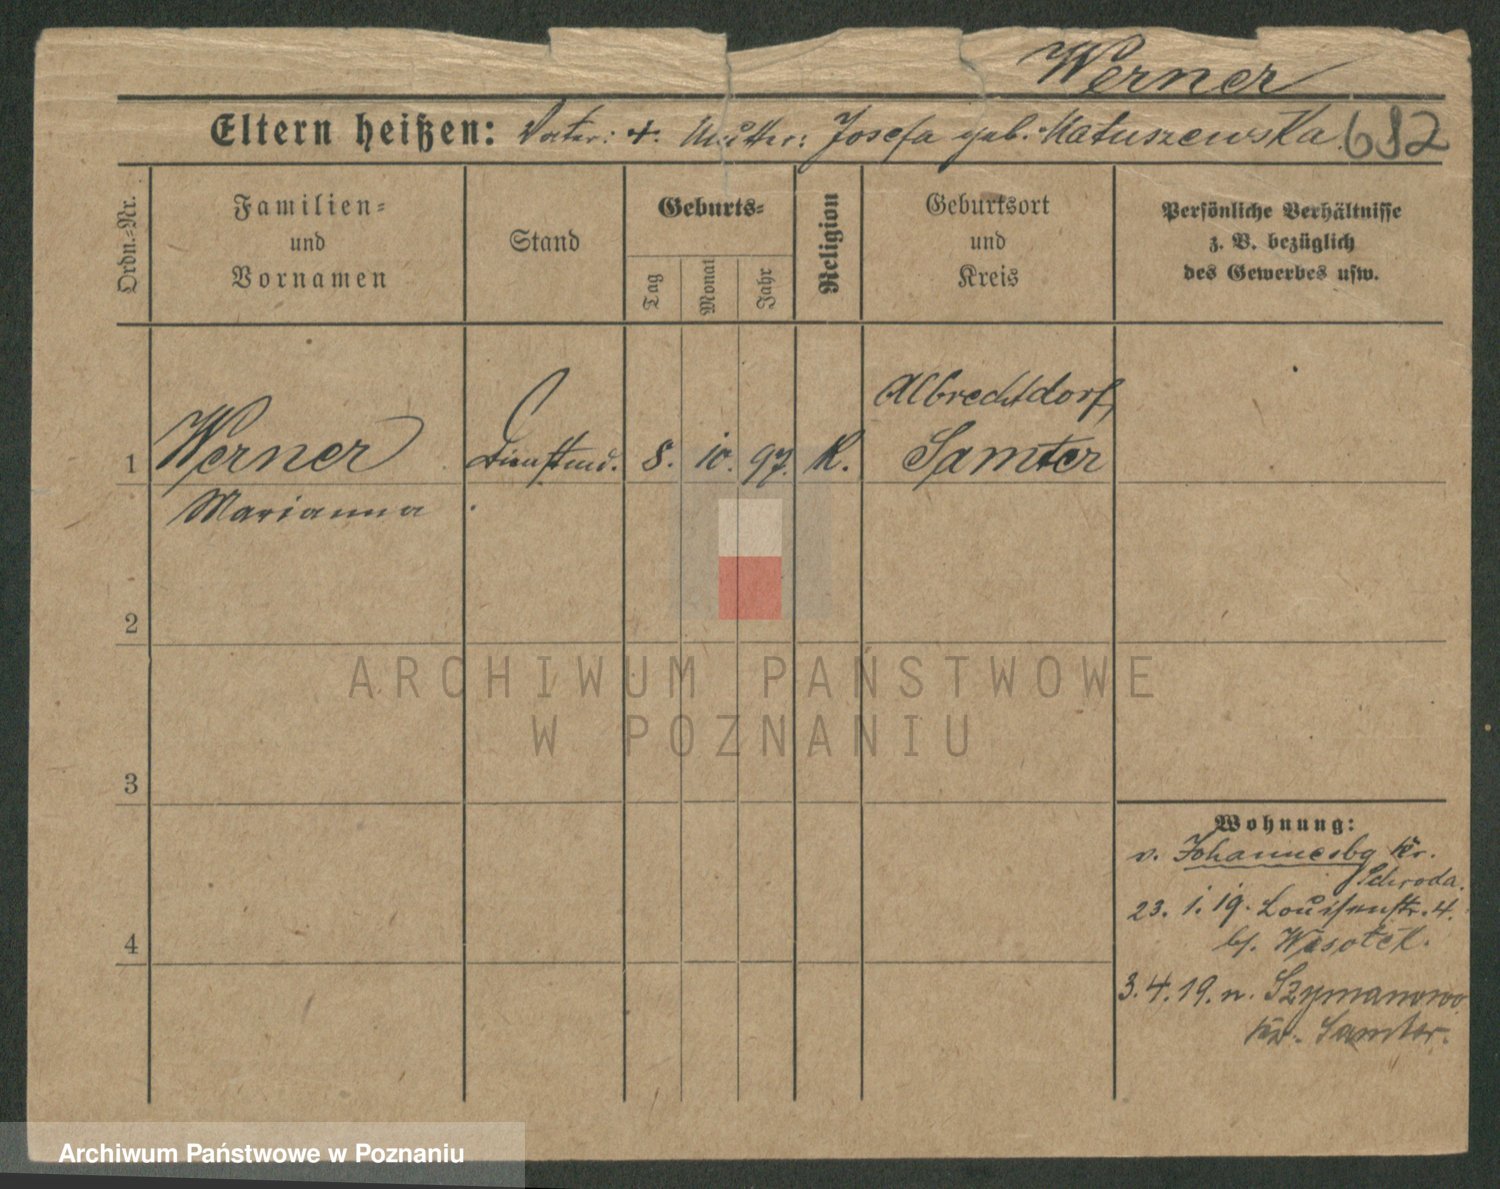 Werner
Eltern heißen: Vater: +. Mutter: Josefa geb. Matuszewska. 682
Ordn.-Nr.
Familien-
und
Vornamen
Stand
Geburts-
Tag
Monat
Jahr
Religion
Geburtsort
und
Kreis
Persönliche Verhältnisse
z. B. bezüglich
des Gewerbes usw.
1 Werner Dienstmd. 8. 10. 97. K. Albrechtdorf, Samter
Marianna
2
3
4
Wohnung:
v. Johannesbg Kr.
Schroda.
23. 1. 19. Louisenstr. 4.
bf. Wesolek.
3. 4. 19. n. Szymanowo
Kr. Samter.
ARCHIWUM PAŃSTWOWE
W POZNANIU
Archiwum Państwowe w Poznaniu